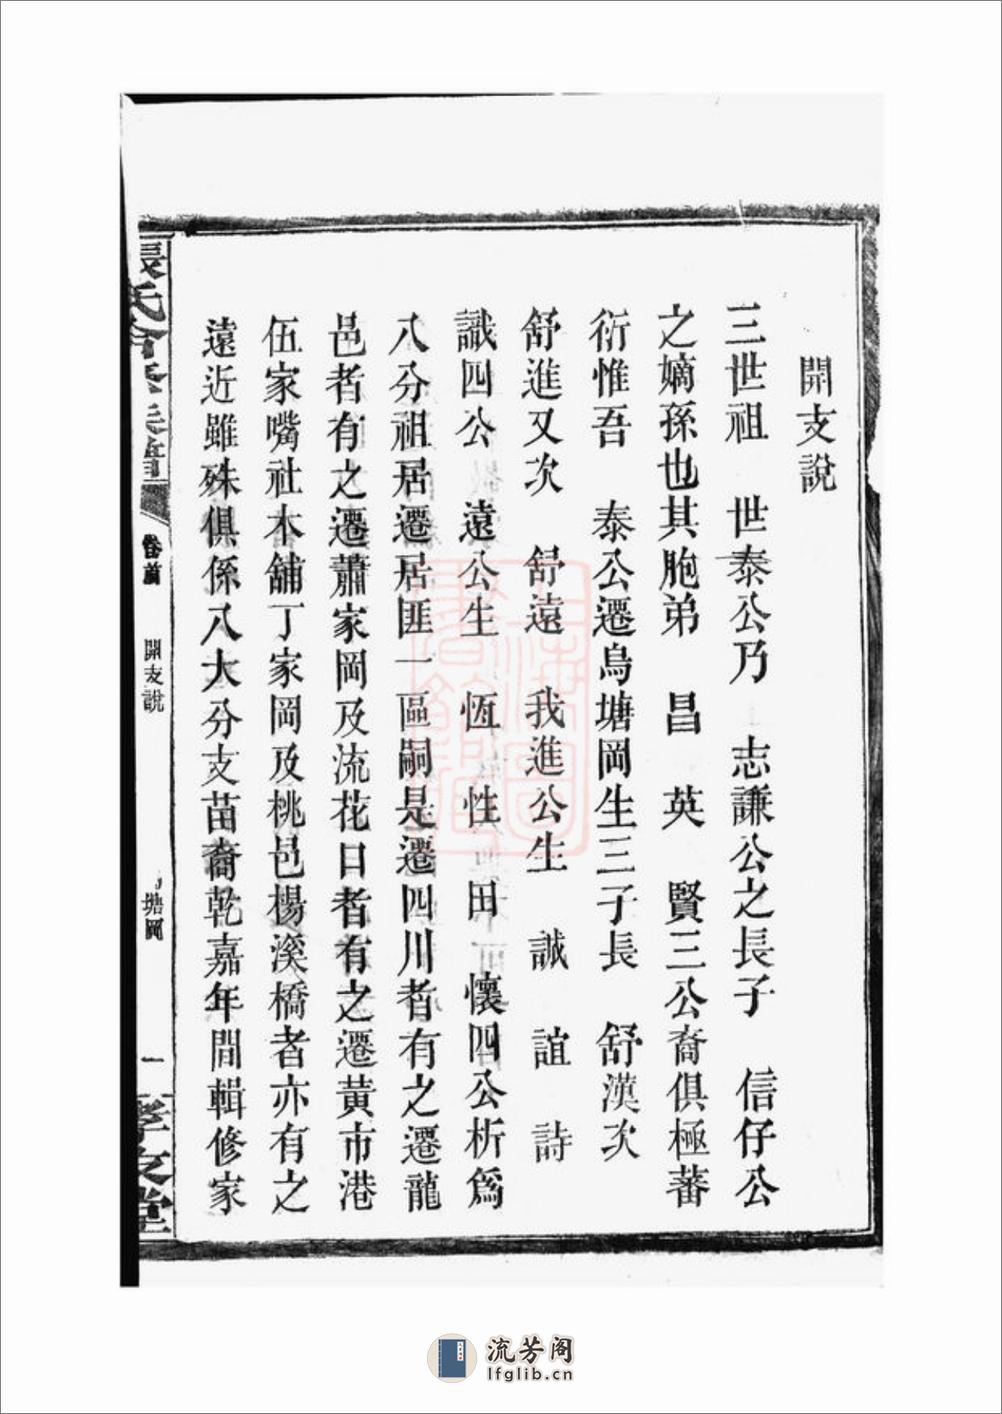 開支說
三世祖　世泰公乃　志謙公之長子　信仔公
之嫡孫也其胞弟　昌　英　賢三公裔俱極蕃
衍惟吾　泰公遷烏塘岡生三子長　舒漢次
舒進又次　舒遠　我進公生　誠　誼　詩
識四公　遠公生　恆　性　田　懷四公析爲
八分祖居遷居匪一區嗣是遷四川者有之遷龍
邑者有之遷蕭家岡及流花口者有之遷黃市港
伍家嘴社木舖丁家岡及桃邑楊溪橋者亦有之
遠近雖殊俱係八大分支苗裔乾嘉年間輯修家
張氏合修族譜
卷首
開支說
塘岡
一
孝友堂
流芳阁
lfglib.cn